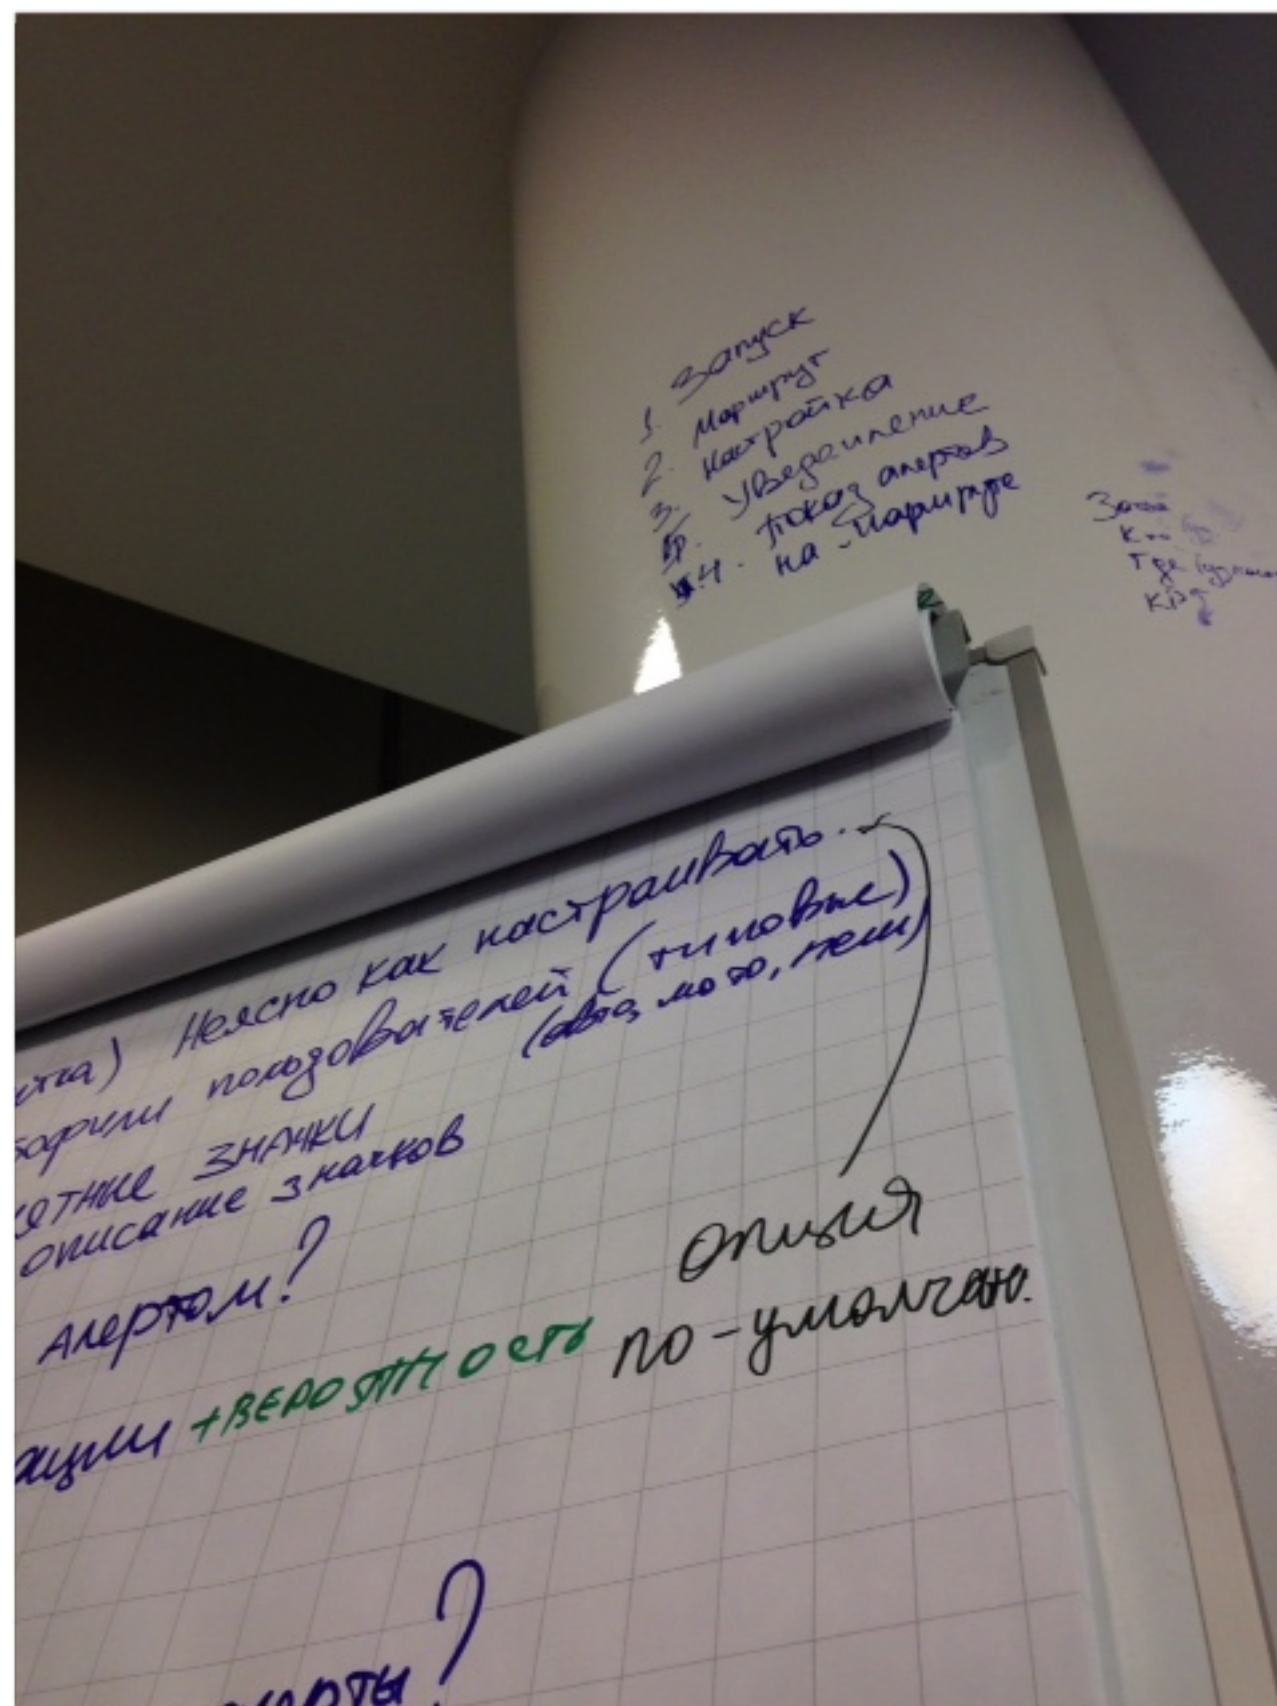 1. Запуск
2. Маршрут
3. Настройка
Уведомление
4. Показ алертов
на маршруте
Где
Неясно как настраивать
пользователей (типовые)
(авто, мото, пеш)
значки
описание значков
алертом?
+ВЕРОЯТНОСТЬ
опция
по-умолчаю.
?